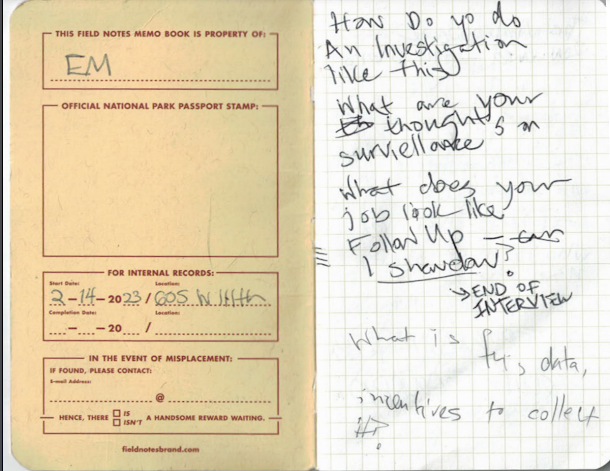 THIS FIELD NOTES MEMO BOOK IS PROPERTY OF:
EM
OFFICIAL NATIONAL PARK PASSPORT STAMP:
FOR INTERNAL RECORDS:
Start Date: Location:
2-14-2023 / 605 W 114th
Completion Date: Location:
— — 20 /
IN THE EVENT OF MISPLACEMENT:
IF FOUND, PLEASE CONTACT:
E-mail Address:
@
HENCE, THERE ☐ IS ☐ ISN'T A HANDSOME REWARD WAITING.
fieldnotesbrand.com
How Do yo do
An Investigation
like this
What are your
thoughts on
surviellance
What does your
job look like
Follow Up –
I shawdow?
→ END OF
INTERVIEW
What is
data,
incentives to collect
it?